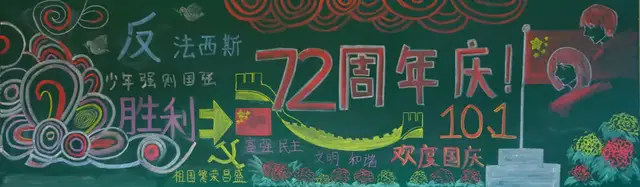 反法西斯
少年强则国强
胜利
72周年庆!
10.1
富强 民主
文明 和谐
欢度国庆
祖国繁荣昌盛